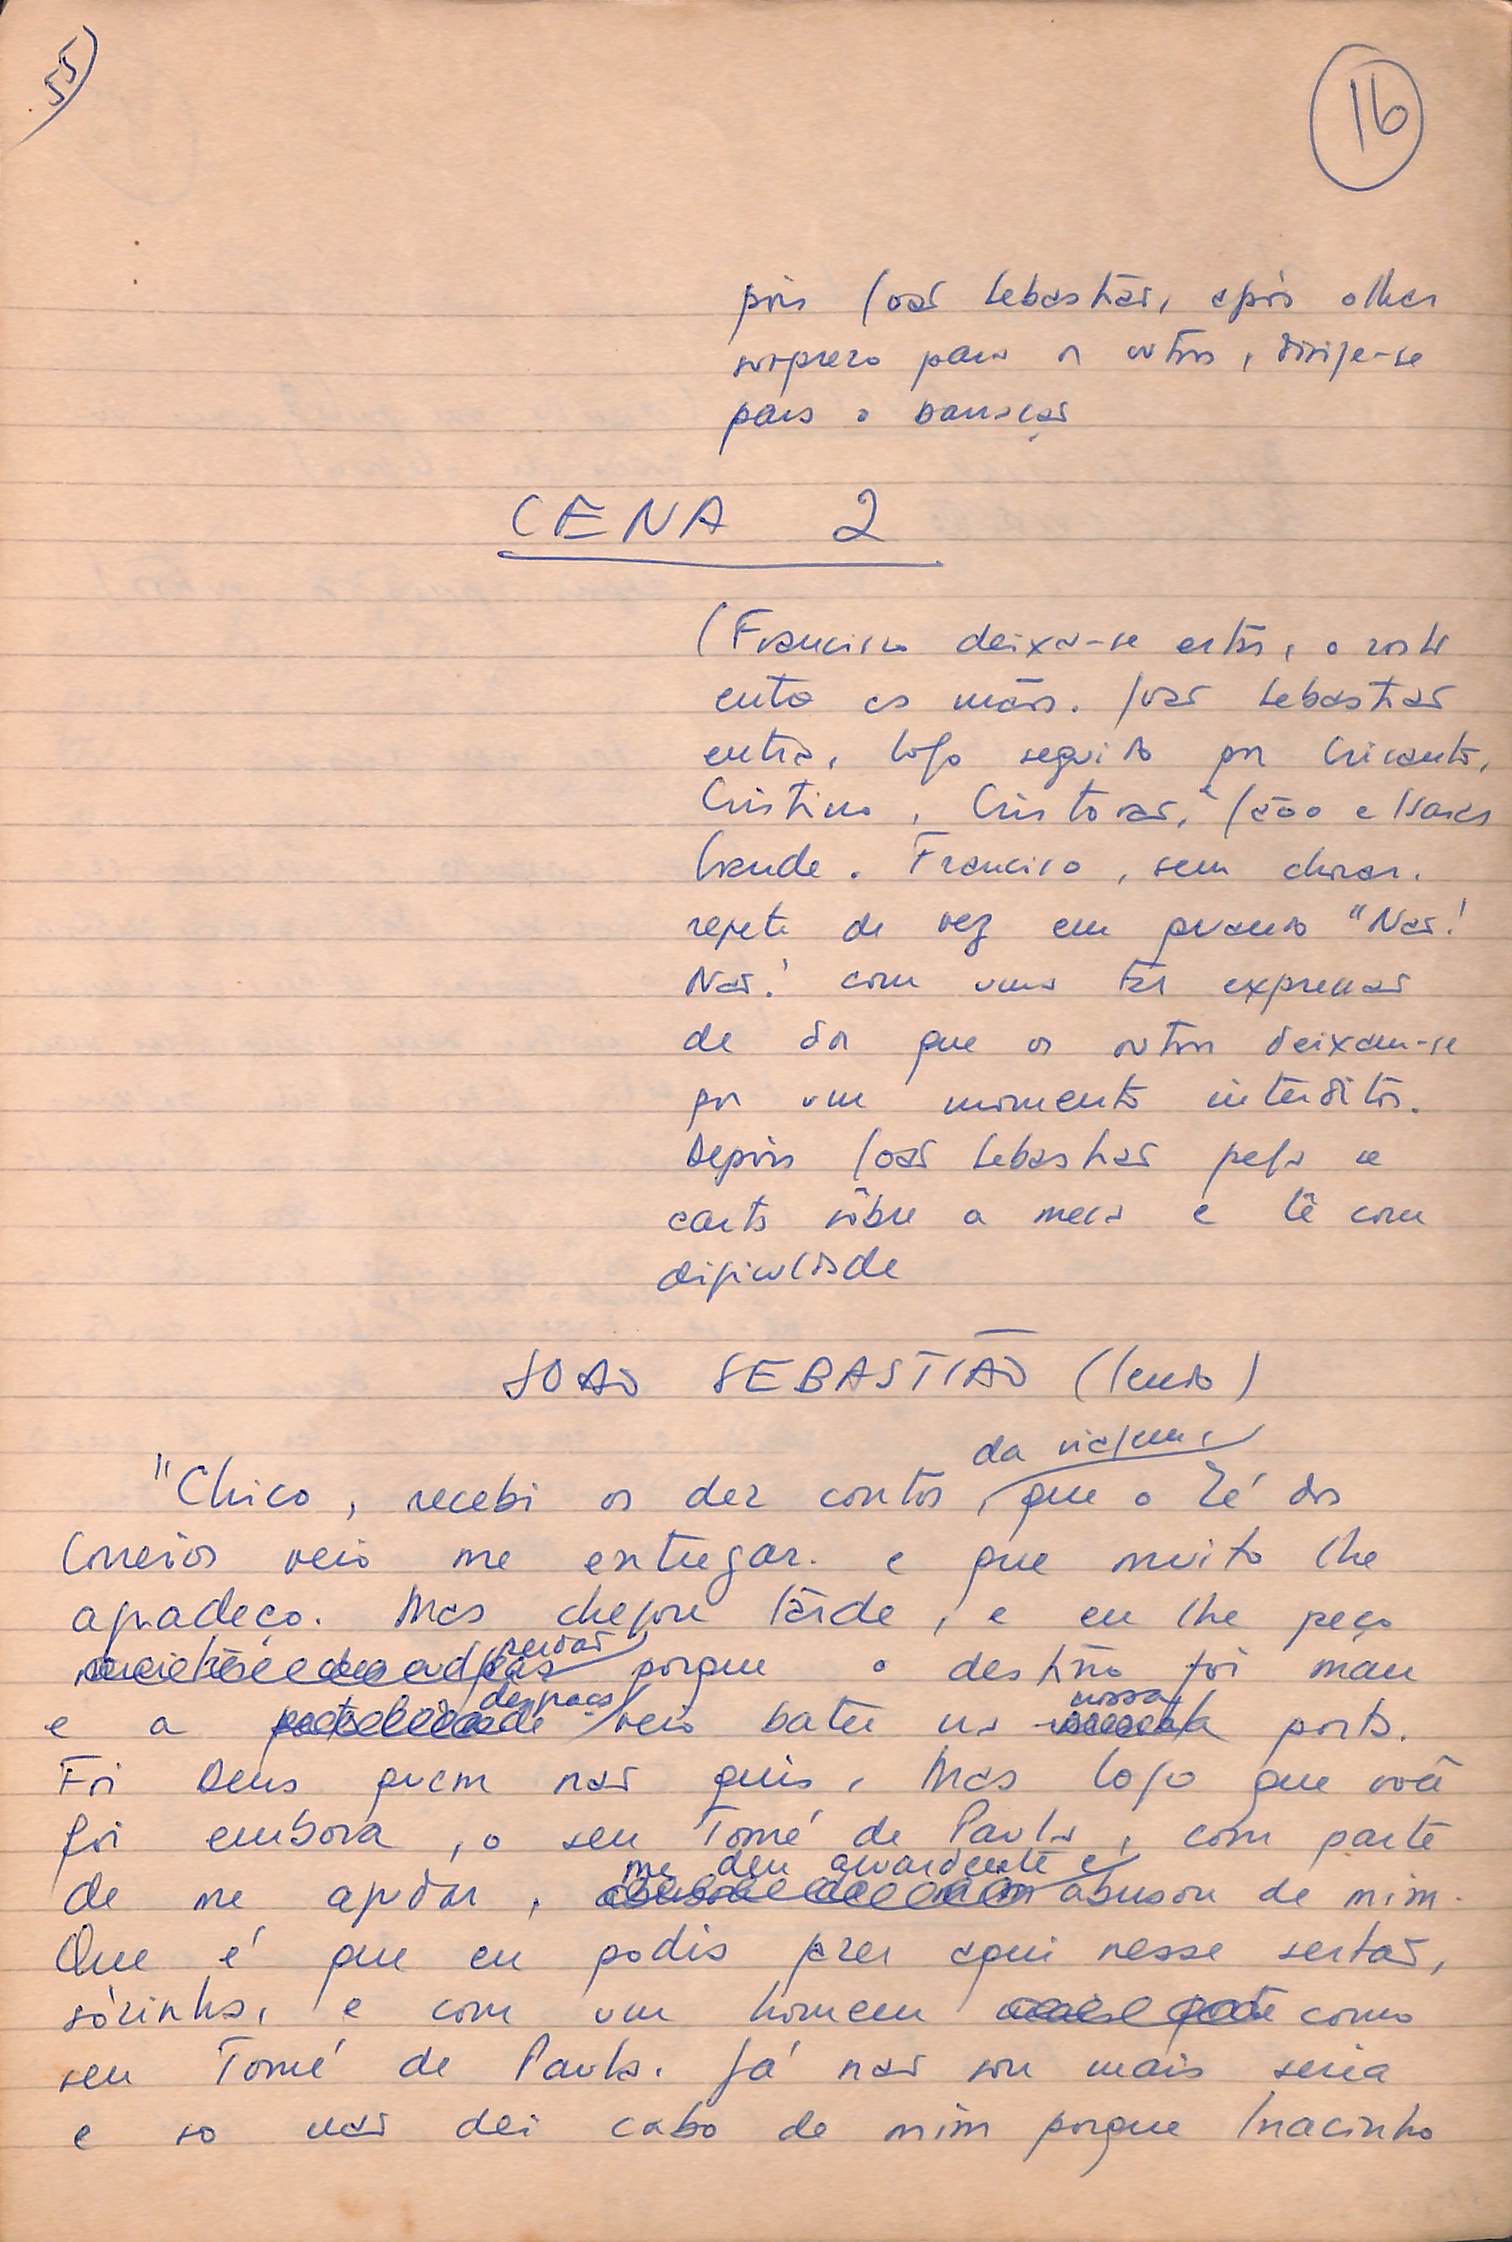 55)
16
pois João Sebastião, após olhar
surpreso para os outros, dirige-se
para o barracão
CENA 2
(Francisco deixa-se estar, o rosto
entre as mãos. João Sebastião
entra, logo seguido por
Cristino, Cristovão, João e Isaias
Grande. Francisco, sem chorar,
repete de vez em quando "Não!
Não! com uma tal expressão
de dor que os outros deixam-se
por um momento interditos.
Depois João Sebastião pega a
carta sôbre a mesa e lê com
dificuldade
JOAO SEBASTIÃO (lendo)
da viajem,
"Chico, recebi os dez contos, que o Zé dos
Correios veio me entregar. e que muito lhe
agradeço. Mas chegou tarde, e eu lhe peço
perdão, porque o destino foi mau
e a desgraça veio bater na nossa porta.
Foi Deus quem não quis. Mas logo que você
foi embora, o seu Tomé de Paula, com parte
me deu aguardente e
de me ajudar, abusou de mim.
Que é que eu podia fazer aqui nesse sertão,
sòzinha, e com um homem como
seu Tomé de Paula. Já não sou mais séria
e so não dei cabo de mim porque Inacinho